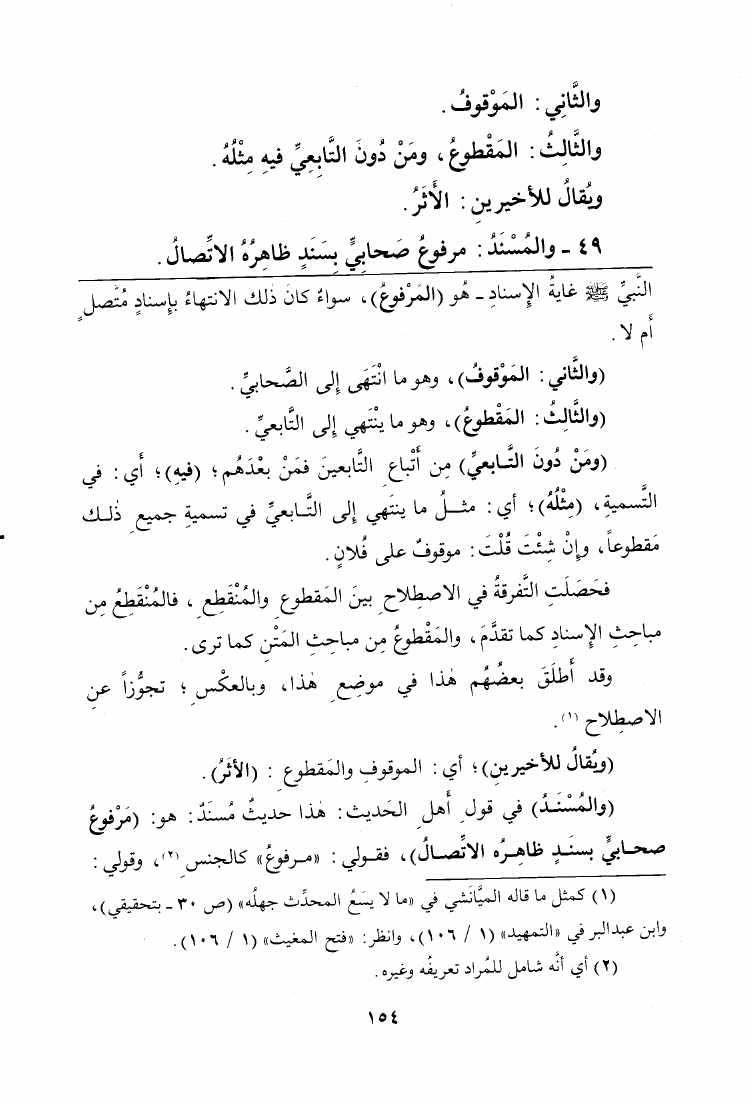 والثَّانِي : المَوْقوفُ .
والثَّالِثُ : المَقْطوعُ ، ومَنْ دُونَ التَّابِعِيِّ فيهِ مِثْلُهُ .
ويُقالُ للأخيرينِ : الأَثَرُ .
٤٩ ـ والمُسْنَدُ : مرفوعُ صَحابِيٍّ بِسَنَدٍ ظاهِرُهُ الاتِّصالُ .
النَّبيِّ ﷺ غايةُ الإِسنادِ ـ هُو (المَرْفوعُ) ، سواءٌ كانَ ذٰلك الانتهاءُ بإِسنادٍ مُتَّصلٍ
أم لا .
(والثَّاني : المَوْقوفُ) ، وهو ما انْتَهَى إِلى الصَّحابيِّ .
(والثَّالِثُ : المَقْطوعُ) ، وهو ما ينْتَهي إِلى التَّابعيِّ .
(ومَنْ دُونَ التَّابعيِّ) مِن أَتْباعِ التَّابعينَ فمَنْ بعْدَهُم ؛ (فيهِ) ؛ أي : في
التَّسميةِ ، (مِثْلُهُ) ؛ أي : مثلُ ما ينتَهي إِلى التَّابعيِّ في تسميةِ جميعِ ذٰلك
مَقطوعاً ، وإِنْ شِئْتَ قُلْتَ : موقوفٌ على فُلانٍ .
فحَصَلَتِ التَّفرقةُ في الاصطِلاحِ بينَ المَقطوعِ والمُنْقَطِعِ ، فالمُنْقَطِعُ مِن
مباحِثِ الإِسنادِ كما تقدَّمَ ، والمَقْطوعُ مِن مباحِثِ المَتْنِ كما ترى .
وقد أَطلَقَ بعضُهُم هٰذا في موضِعِ هٰذا ، وبالعكْسِ ؛ تجوُّزاً عنِ
الاصطِلاحِ (١) .
(ويُقالُ للأخيرينِ) ؛ أي : الموقوفِ والمَقطوعِ : (الأثَرُ) .
(والمُسْنَدُ) في قولِ أَهلِ الحَديثِ : هٰذا حديثٌ مُسنَدٌ : هو : (مَرْفوعُ
صحابيٍّ بسَنَدٍ ظاهِرُه الاتِّصالُ) ، فقولي : «مرفوعُ» كالجنسِ (٢) ، وقولي :
(١) كمثل ما قاله الميَّانشي في «ما لا يسَعُ المحدِّث جهلُه» (ص ٣٠ ـ بتحقيقي) ،
وابن عبدالبر في «التمهيد» (١ / ١٠٦) ، وانظر : «فتح المغيث» (١ / ١٠٦) .
(٢) أي أنَّه شامل للمُراد تعريفُه وغيره .
١٥٤